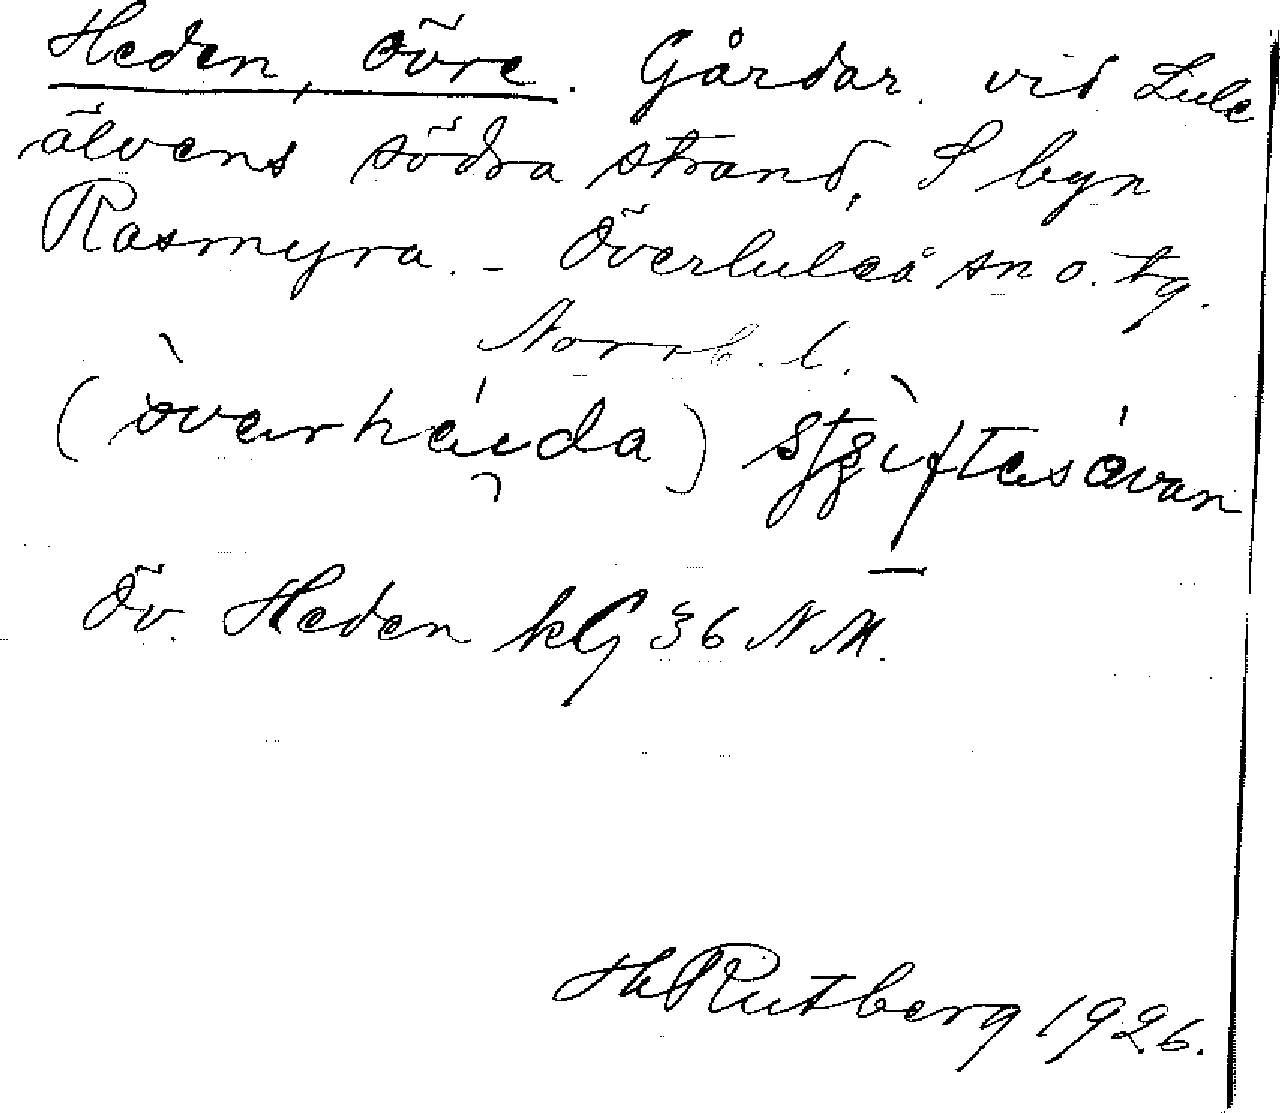 Heden, övre. Gårdar vid Lule
älvens södra strand. I byn
Rasmyra. - Överluleå sn o. tg.
Norrb. l.
(òvarhéida)
Öv. Heden kG 36 N M.
H Rutberg 1926.